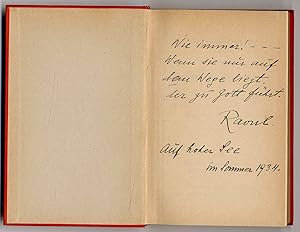 Nie immer! – – –
Wenn sie nur auf
dem Wege liegt,
der zu Gott führt
Raoul.
Auf hoher See
im Sommer 1934.